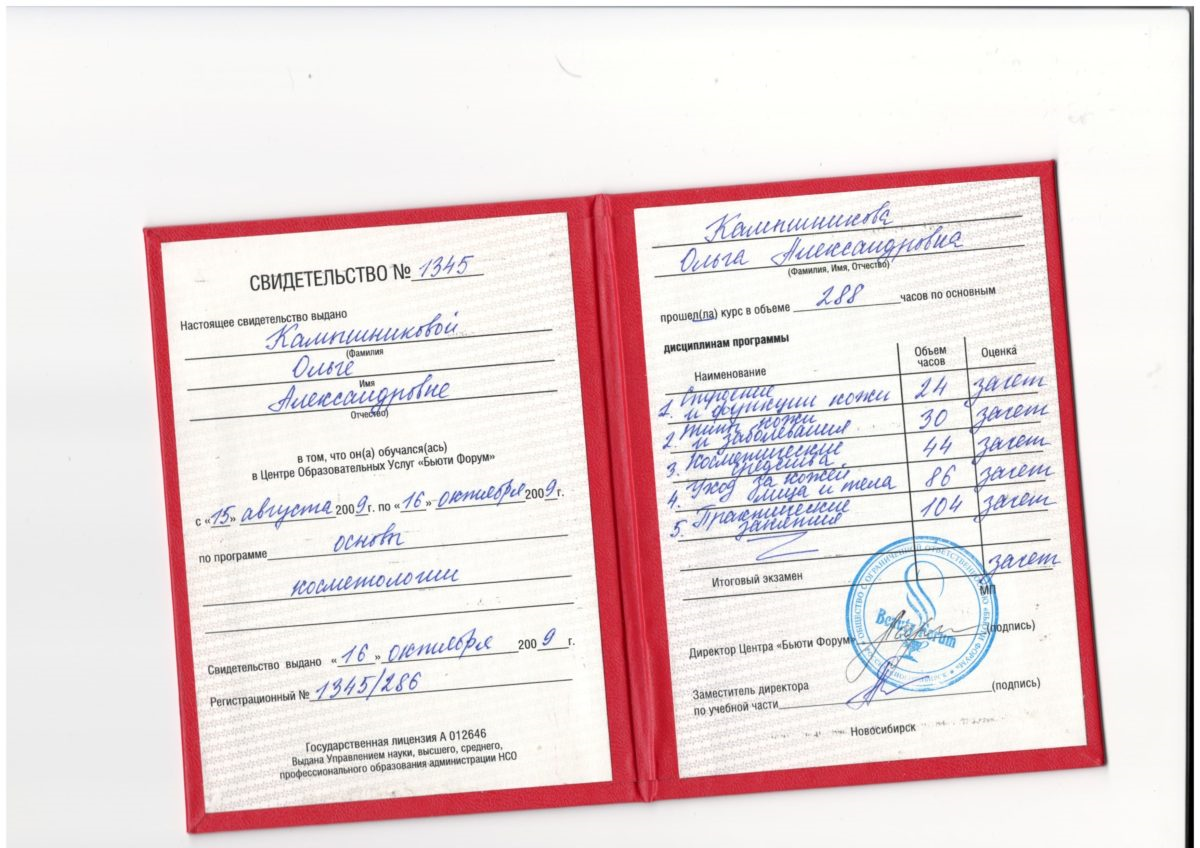 СВИДЕТЕЛЬСТВО № 1345
Настоящее свидетельство выдано
Кампшниковой
(Фамилия
Ольге
Имя
Александровне
Отчество)
в том, что он(а) обучался(ась)
в Центре Образовательных Услуг «Бьюти Форум»
с «15» августа 2009г. по «16» октября 2009г.
по программе основы
косметологии
Свидетельство выдано «16» октября 2009 г.
Регистрационный № 1345/286
Государственная лицензия А 012646
Выдана Управлением науки, высшего, среднего,
профессионального образования администрации НСО
Кампшникова
Ольга Александровна
(Фамилия, Имя, Отчество)
прошел(ла) курс в объеме 288 часов по основным
дисциплинам программы
Наименование Объем часов Оценка
1. Строение
и функции кожи 24 зачет
2. Типы кожи
и заболевания 30 зачет
3. Косметические
средства 44 зачет
4. Уход за кожей
лица и тела 86 зачет
5. Практические
занятия 104 зачет
Итоговый экзамен зачет
МП
Директор Центра «Бьюти Форум» (подпись)
ОБЩЕСТВО С ОГРАНИЧЕННОЙ ОТВЕТСТВЕННОСТЬЮ «БЬЮТИ ФОРУМ»
Beauty Forum
Заместитель директора
по учебной части (подпись)
Новосибирск